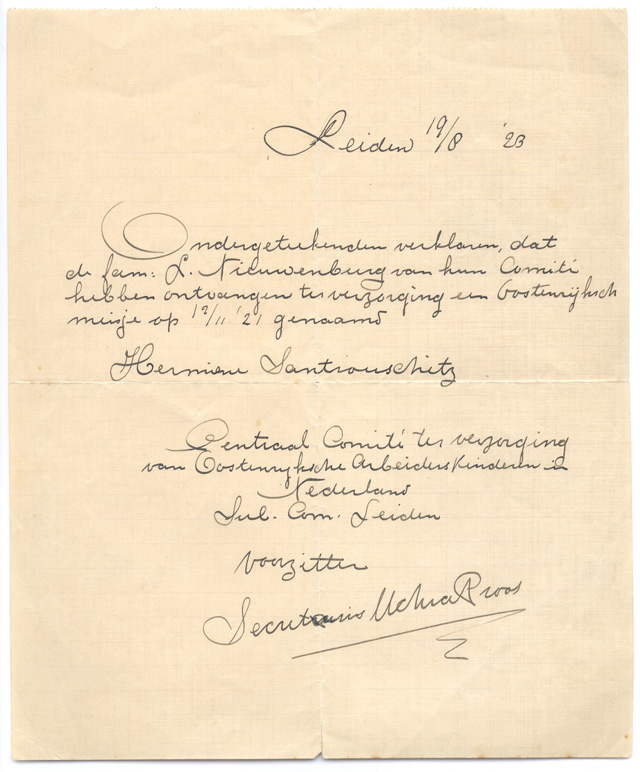 Leiden 19/8 '23
Ondergeteekenden verklaren, dat
de fam: L. Nieuwenburg van hun Comité
hebben ontvangen ter verzorging een Oostenrijksch
meisje op 12/11 '21 genaamd
Hermiene Santrouschitz
Centraal Comité ter verzorging
van Oostenrijksche Arbeiderskinderen in
Nederland
Sub. Com. Leiden
Voorzitter
Secretaris